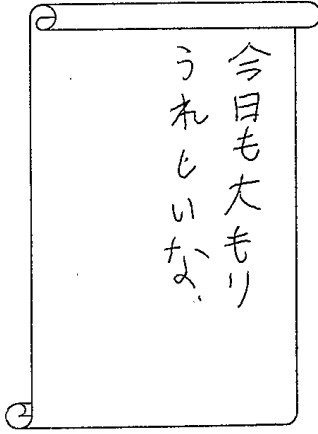 今日も大もり
うれしいな、